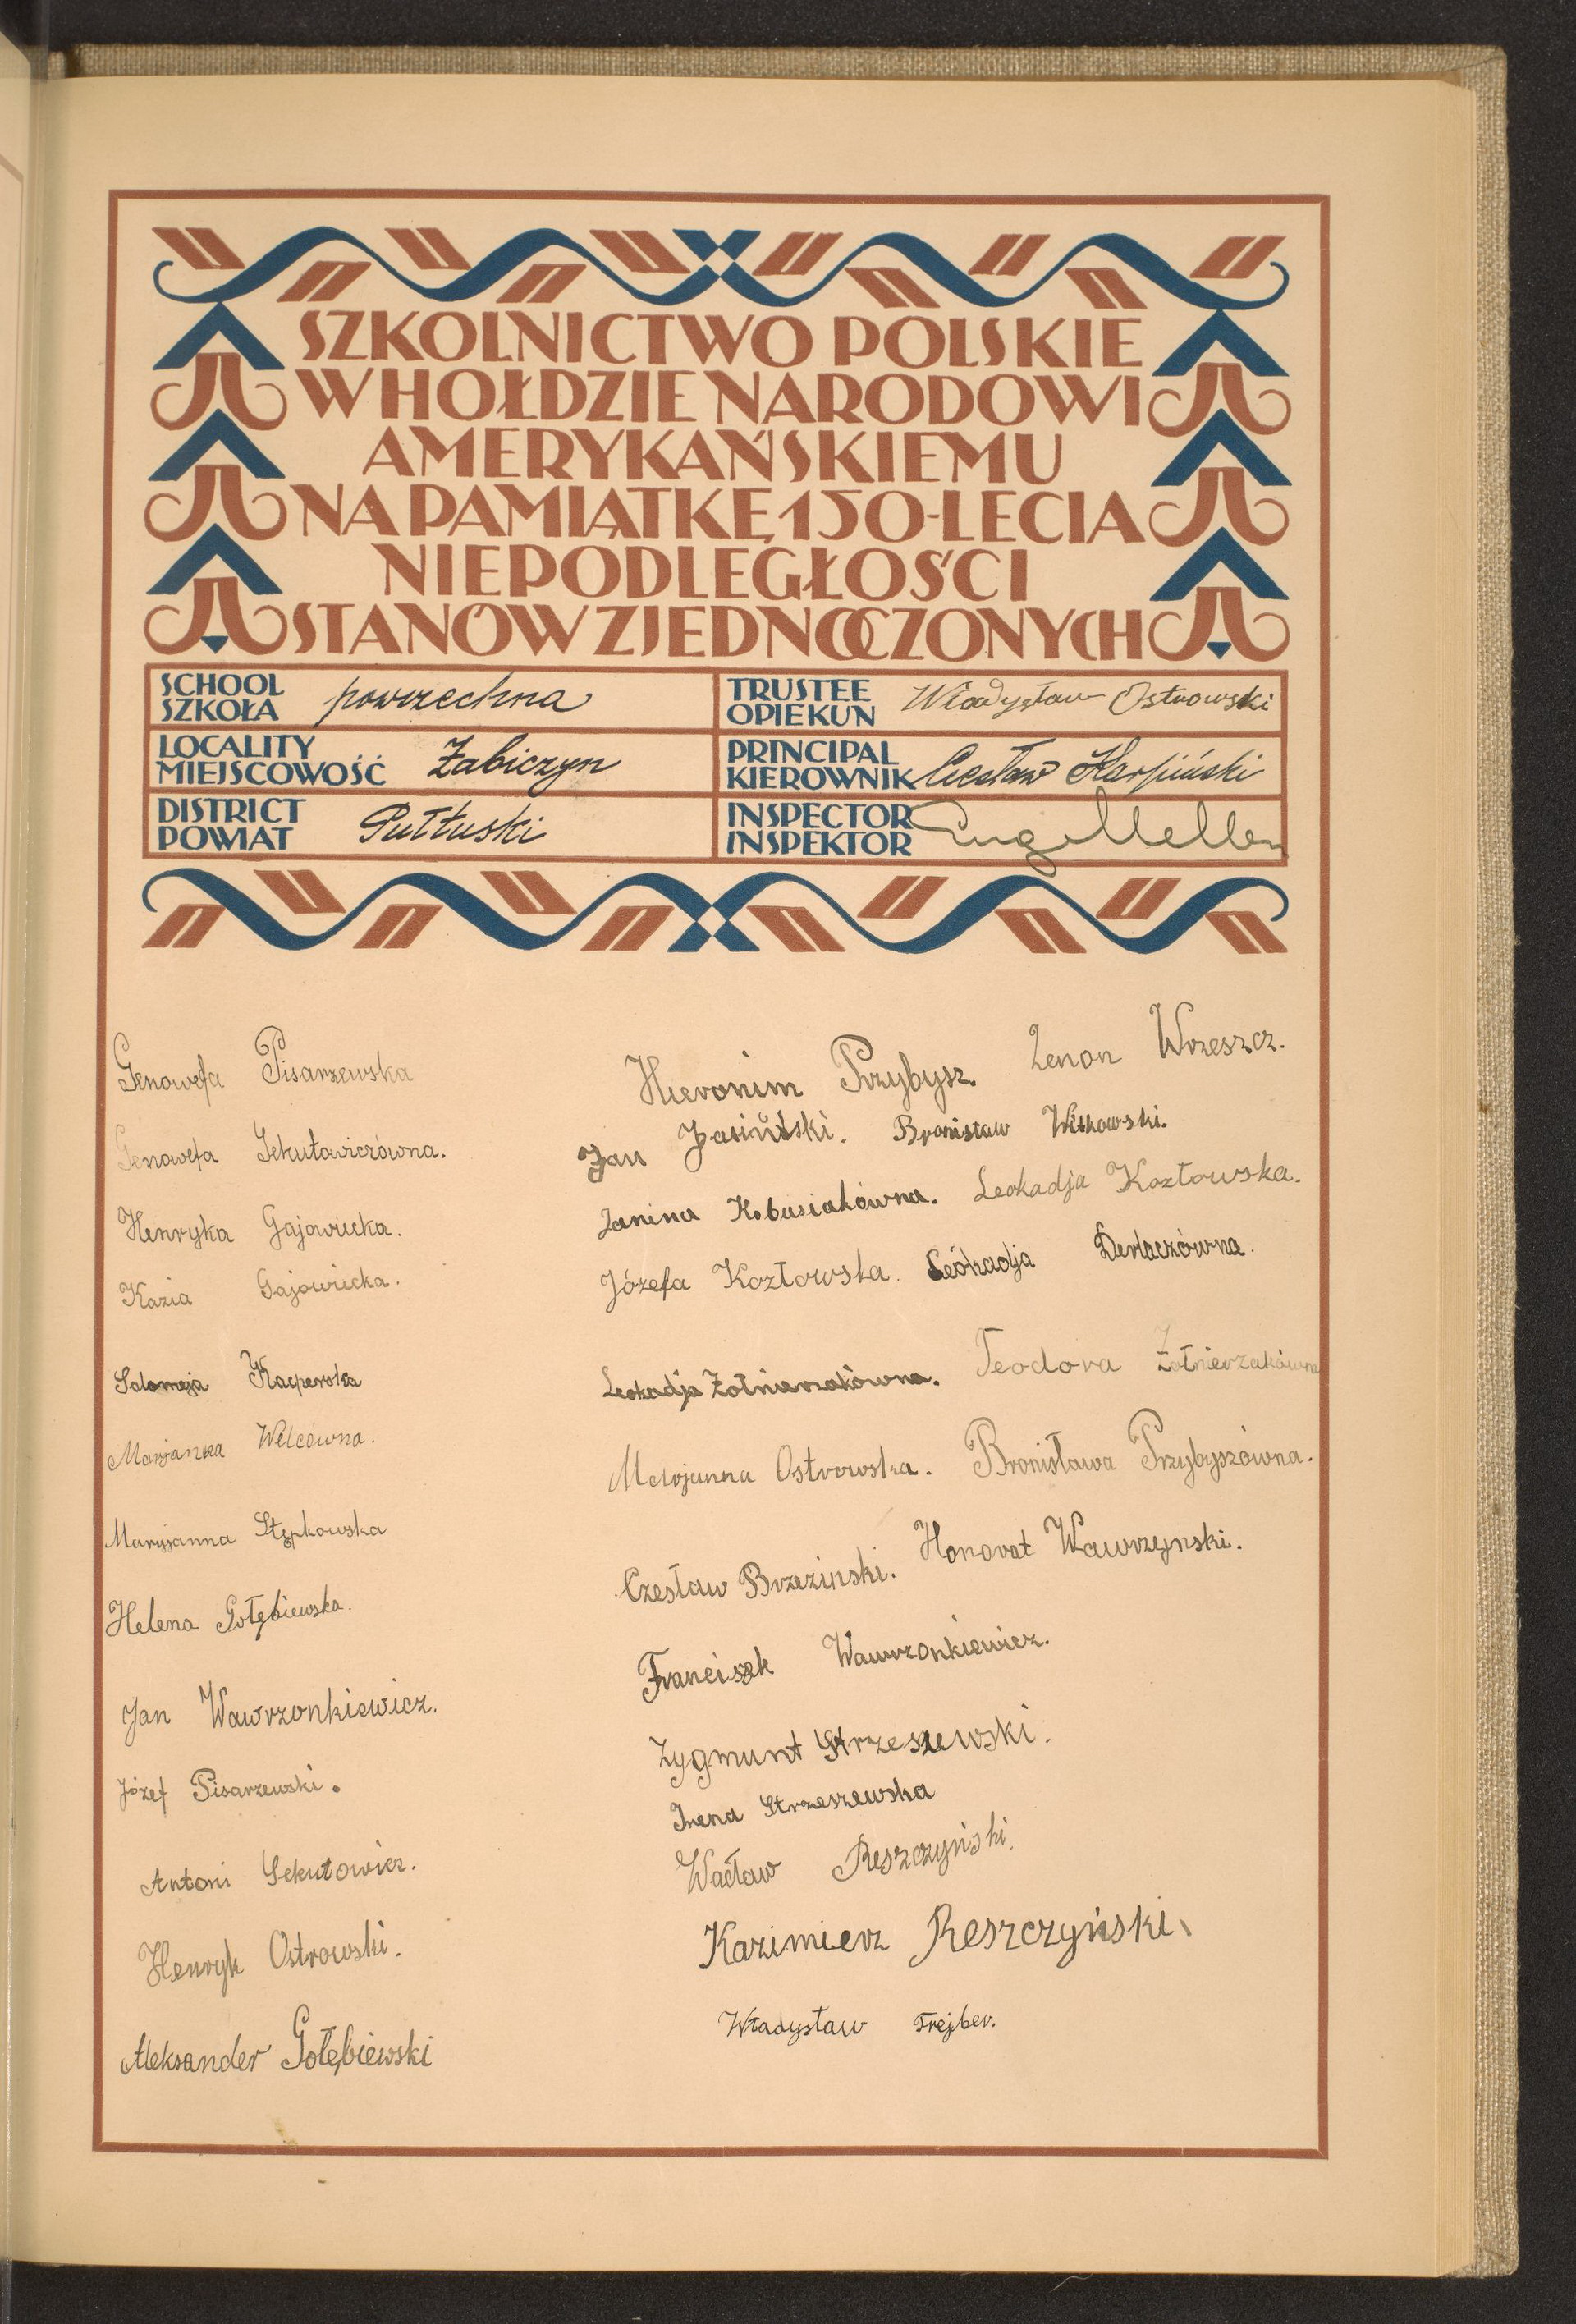 SZKOLNICTWO POLSKIE
W HOŁDZIE NARODOWI
AMERYKAŃSKIEMU
NA PAMIĄTKĘ 150-LECIA
NIEPODLEGŁOŚCI
STANÓW ZJEDNOCZONYCH
SCHOOL
SZKOŁA
powszechna
TRUSTEE
OPIEKUN
Władysław Ostrowski
LOCALITY
MIEJSCOWOŚĆ
Żabiczyn
PRINCIPAL
KIEROWNIK
Czesław Karpiński
DISTRICT
POWIAT
Pułtuski
INSPECTOR
INSPEKTOR
Genowefa Pisarzewska
Genowefa Sekutowiczówna.
Henryka Gajowicka.
Kazia Gajowicka.
Salomeja Kacperska
Marjanna Welcówna.
Maryjanna Stępkowska
Helena Gołębiewska.
Jan Wawrzonkiewicz.
Józef Pisarzewski.
Antoni Sekutowicz.
Henryk Ostrowski.
Aleksander Gołębiewski
Hieronim Przybysz. Zenon Wrzeszcz.
Jan Jasiński. Bronisław Witkowski.
Janina Kobusiakówna. Leokadja Kozłowska.
Józefa Kozłowska. Leokadja Derlaczówna.
Leokadja Żołnierzakówna. Teodora Żołnierzakówna
Marjanna Ostrowska. Bronisława Przybyszówna.
Czesław Brzezinski. Honorat Wawrzynski.
Franciszek Wawrzonkiewicz.
Zygmunt Strzeszewski.
Irena Strzeszewska
Wacław Reszczyński.
Kazimierz Reszczyński
Władysław Frejber.